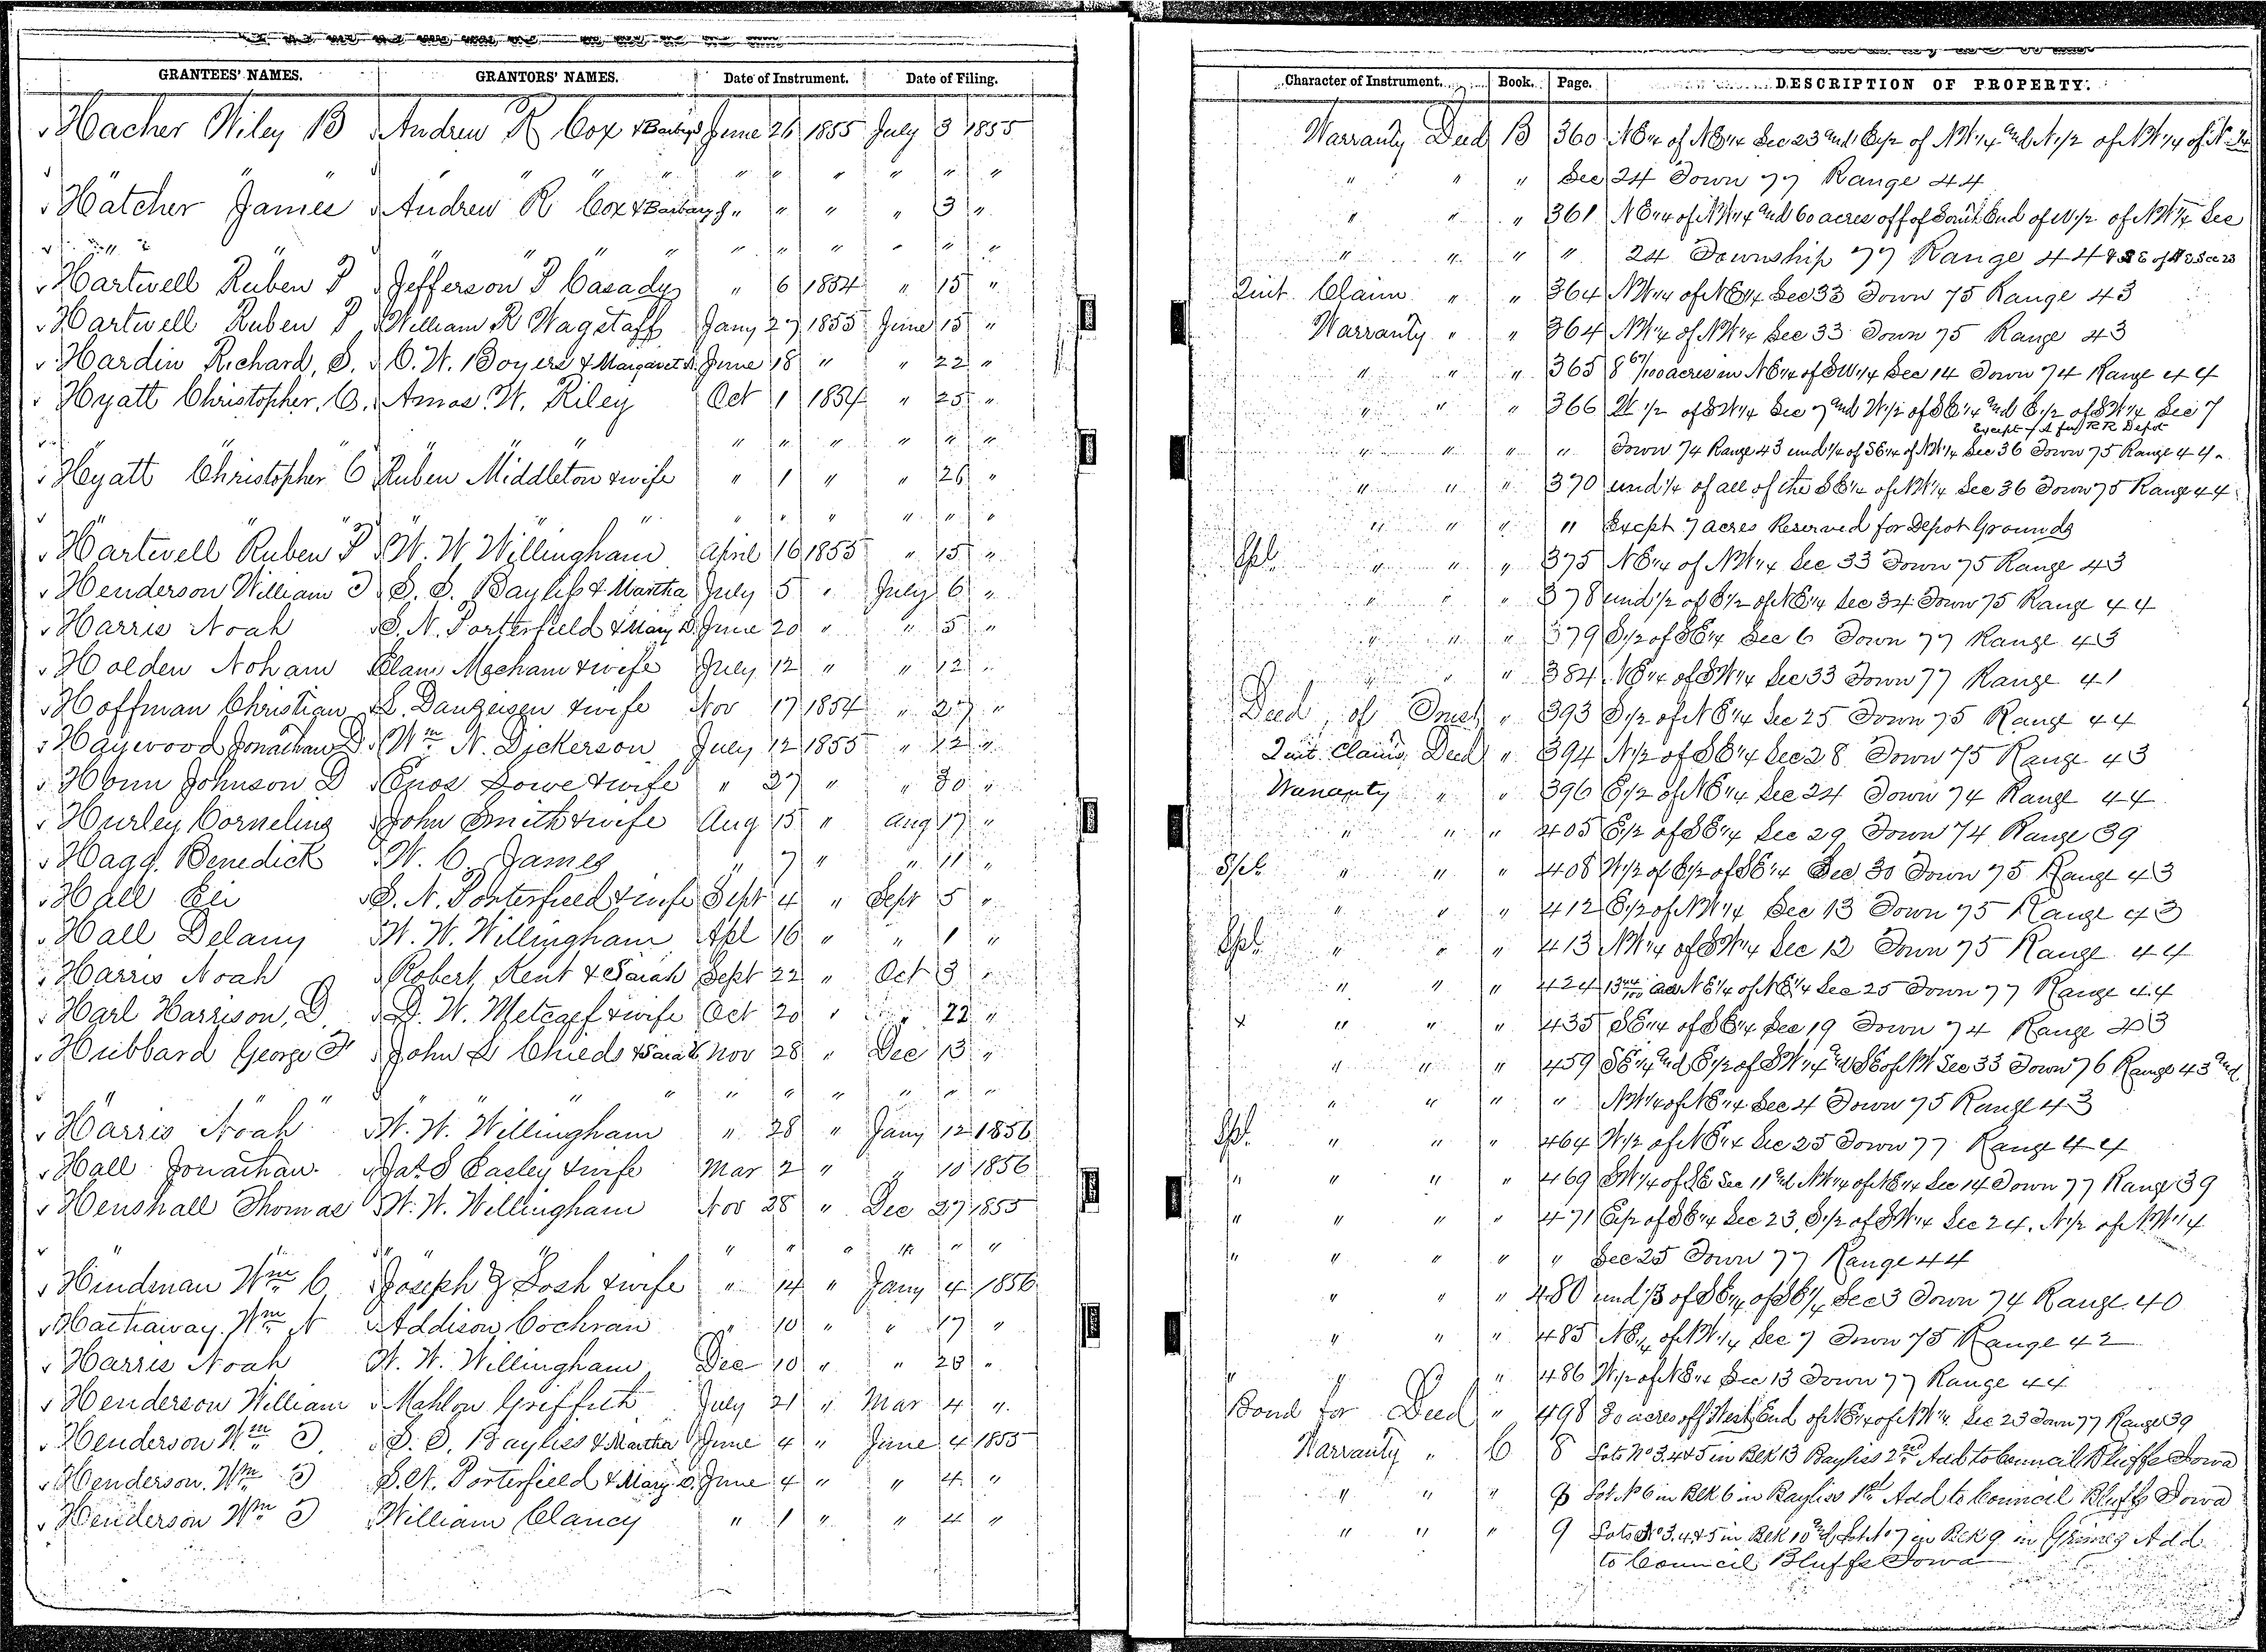 GRANTEES' NAMES. GRANTORS' NAMES. Date of Instrument. Date of Filing. Character of Instrument. Book. Page. DESCRIPTION OF PROPERTY.
Hacher Wiley B Andrew R Cox June 26 1855 July 3 1855 Warranty Deed B 360 NE 1/4 of NE 1/4 Sec 23 and E 1/2 of NW 1/4 and N 1/2 of NW 1/4 of
" " " " " " " " " " " " " " " Sec 24 Town 77 Range 44
Hatcher James Andrew R Cox & Barbary J " " " " 3 " " " " 361 NE 1/4 of NW 1/4 and 60 acres off of South End of W 1/2 of NW 1/4 Sec
" " " " " " " " " " " " " " " 24 Township 77 Range 44
Hartwell Ruben P Jefferson P Casady " 6 1854 " 15 " Quit Claim " " 364 NW 1/4 of NE 1/4 Sec 33 Town 75 Range 43
Hartwell Ruben P William R Wagstaff Jany 27 1855 June 15 " Warranty " " 364 NW 1/4 of NW 1/4 Sec 33 Town 75 Range 43
Hardin Richard, S. C. W. Boyers & Margaret A. June 18 " " 22 " " " " 365 8 67/100 acres in NE 1/4 of SW 1/4 Sec 14 Town 74 Range 44
Hyatt Christopher, C. Amos. W. Riley Oct 1 1854 " 25 " " " " 366 W 1/2 of SW 1/4 Sec 7 and W 1/2 of SE 1/4 and E 1/2 of SW 1/4 Sec 7
Except 7 A for RR Depot
" " " " " " " " " " " " Town 74 Range 43 und 1/4 of SE 1/4 of NW 1/4 Sec 36 Town 75 Range 44
Hyatt Christopher C Ruben Middleton & wife " 1 " " 26 " " " " 370 und 1/4 of all of the SE 1/4 of NW 1/4 Sec 36 Town 75 Range 44
" " " " " " " " " " " " " Except 7 acres Reserved for Depot Grounds
Hartwell Ruben P W. W. Willingham April 16 1855 " 15 " Spl. " " " 375 NE 1/4 of NW 1/4 Sec 33 Town 75 Range 43
Henderson William T S. S. Bayliss & Martha July 5 " July 6 " " " " 378 und 1/2 of E 1/2 of NE 1/4 Sec 34 Town 75 Range 44
Harris Noah S. N. Porterfield & Mary D. June 20 " " 5 " " " " 379 S 1/2 of SE 1/4 Sec 6 Town 77 Range 43
Holden Noham Elam Mecham & wife July 12 " " 12 " " " " 384 NE 1/4 of SW 1/4 Sec 33 Town 77 Range 41
Hoffman Christian L. Dangeisen & wife Nov 17 1854 " 27 " Deed of Trust " 393 S 1/2 of NE 1/4 Sec 25 Town 75 Range 44
Haywood Jonathan D. Wm N. Dickerson July 12 1855 " 12 " Quit Claim Deed " 394 N 1/2 of SE 1/4 Sec 28 Town 75 Range 43
Honn Johnson D Enos Lowe & wife " 27 " " 30 " Warranty " " 396 E 1/2 of NE 1/4 Sec 24 Town 74 Range 44
Hurley Cornelius John Smith & wife Aug 15 " Aug 17 " " " " 405 E 1/2 of SE 1/4 Sec 29 Town 74 Range 39
Hagg. Benedick W. C. James " 7 " " 11 " Spl. " " " 408 W 1/2 of E 1/2 of SE 1/4 Sec 30 Town 75 Range 43
Hall Eli S. N. Porterfield & wife Sept 4 " Sept 5 " " " " 412 E 1/2 of NW 1/4 Sec 13 Town 75 Range 43
Hall Delany W. W. Willingham Apl 16 " " 1 " Spl. " " " 413 NW 1/4 of SW 1/4 Sec 12 Town 75 Range 44
Harris Noah Robert Kent & Sarah Sept 22 " Oct 3 " " " " 424 NE 1/4 of NE 1/4 Sec 25 Town 77 Range 44
Harl Harrison, D. D. W. Metcalf & wife Oct 20 " " 22 " " " " 435 SE 1/4 of SE 1/4 Sec 19 Town 74 Range 43
Hubbard George F John L Childs & Sarah Nov 28 " Dec 13 " " " " 459 SE 1/4 and E 1/2 of SW 1/4 and SE of NW Sec 33 Town 76 Range 43 and
" " " " " " " " " " " " " NW 1/4 of NE 1/4 Sec 4 Town 75 Range 43
Harris Noah W. W. Willingham " 28 " Jany 12 1856 Spl. " " " 464 W 1/2 of NE 1/4 Sec 25 Town 77 Range 44
Hall Jonathan Jas S Easley & wife Mar 2 " " 10 1856 " " " " 469 SW 1/4 of SE Sec 11 and NW 1/4 of NE 1/4 Sec 14 Town 77 Range 39
Henshall Thomas W. W. Willingham Nov 28 " Dec 27 1855 " " " " 471 E 1/2 of SE 1/4 Sec 23, S 1/2 of SW 1/4 Sec 24, N 1/2 of NW 1/4
" " " " " " " " " " " " " " Sec 25 Town 77 Range 44
Hindman Wm C Joseph Z Losh & wife " 14 " Jany 4 1856 " " " 480 und 1/3 of SE 1/4 of SE 1/4 Sec 3 Town 74 Range 40
Hathaway Wm N Addison Cochran " 10 " " 17 " " " " 485 NE 1/4 of NW 1/4 Sec 7 Town 75 Range 42
Harris Noah W. W. Willingham Dec 10 " " 28 " " " " " 486 W 1/2 of NE 1/4 Sec 13 Town 77 Range 44
Henderson William Mahlon Griffith July 21 " Mar 4 " Bond for Deed " 498 30 acres off West End of NE 1/4 of NW 1/4 Sec 23 Town 77 Range 39
Henderson Wm T S. S. Bayliss & Martha June 4 " June 4 1855 Warranty " C 8 Lots No 3.4&5 in Blk 13 Bayliss 2nd Add to Council Bluffs Iowa
Henderson. Wm T S. N. Porterfield & Mary D. June 4 " " 4 " " " " 9 Lot No 6 in Blk 6 in Bayliss 1st Add to Council Bluffs Iowa
Henderson Wm T William Clancy " 1 " " 4 " " " " 9 Lots No 3.4&5 in Blk 10 and Lot No 7 in Blk 9 in Grimes Add
to Council Bluffs Iowa